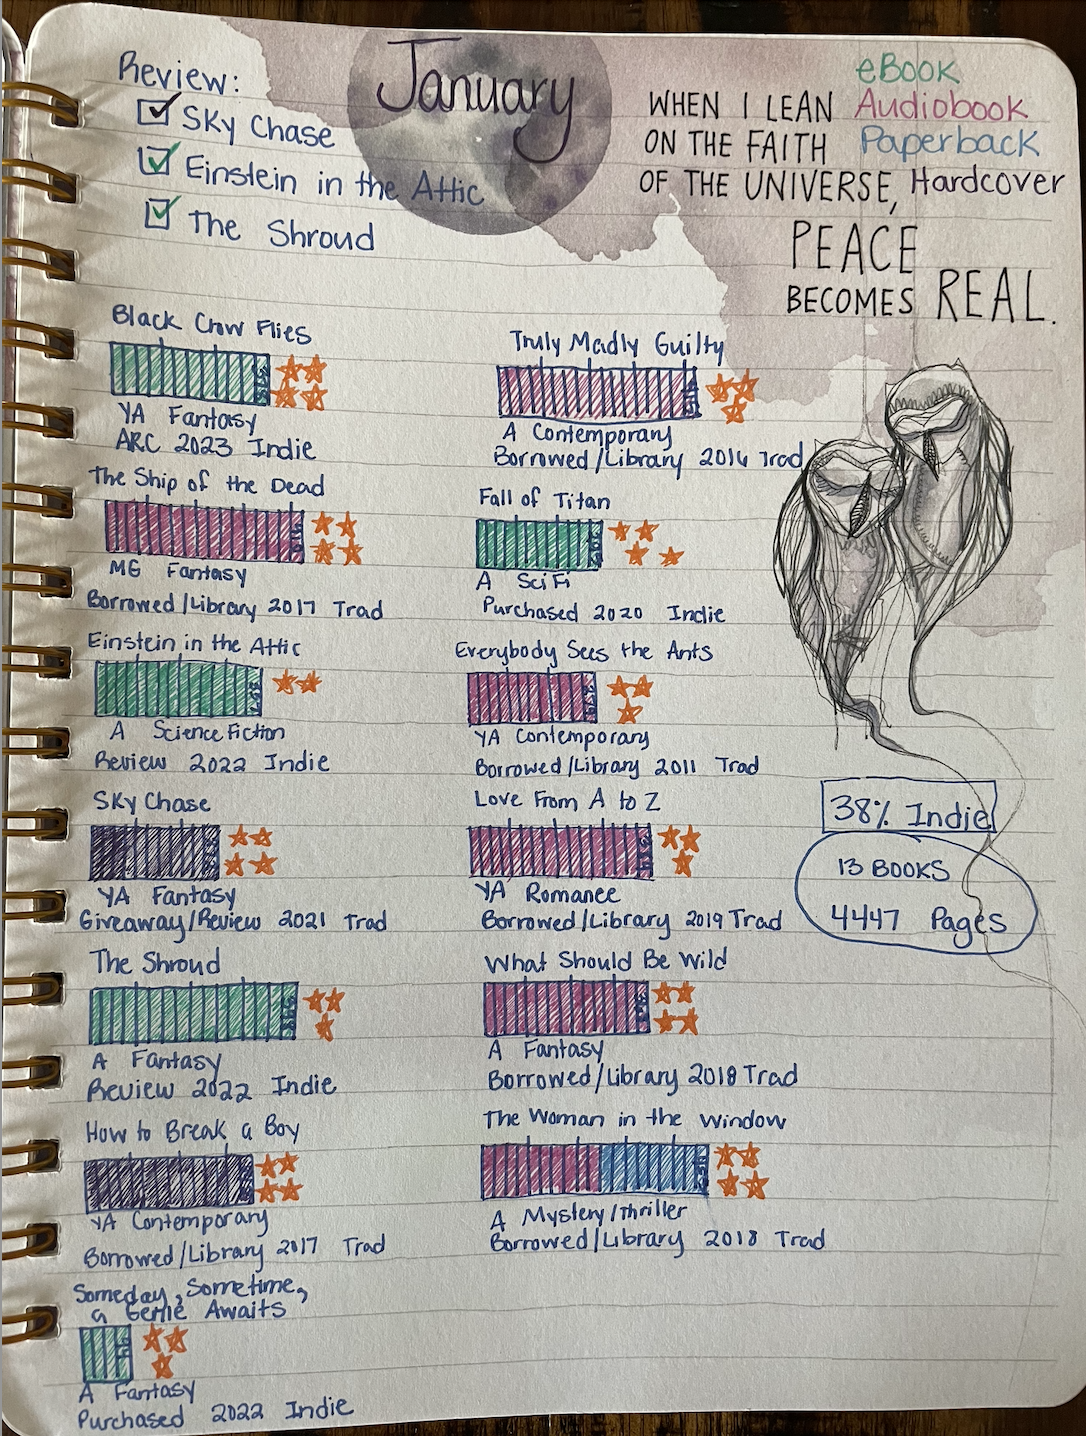 January
Review:
Sky Chase
Einstein in the Attic
The Shroud
WHEN I LEAN
ON THE FAITH
OF THE UNIVERSE,
PEACE
BECOMES REAL.
eBook
Audiobook
Paperback
Hardcover
Black Crow Flies
YA Fantasy
ARC 2023 Indie
The Ship of the Dead
MG Fantasy
Borrowed/Library 2017 Trad
Einstein in the Attic
A Science Fiction
Review 2022 Indie
Sky Chase
YA Fantasy
Giveaway/Review 2021 Trad
The Shroud
A Fantasy
Review 2022 Indie
How to Break a Boy
YA Contemporary
Borrowed/Library 2017 Trad
Someday, Sometime,
a Genie Awaits
A Fantasy
Purchased 2022 Indie
Truly Madly Guilty
A Contemporary
Borrowed/Library 2016 Trad
Fall of Titan
A SciFi
Purchased 2020 Indie
Everybody Sees the Ants
YA Contemporary
Borrowed/Library 2011 Trad
Love From A to Z
YA Romance
Borrowed/Library 2019 Trad
What Should Be Wild
A Fantasy
Borrowed/Library 2018 Trad
The Woman in the Window
A Mystery/Thriller
Borrowed/Library 2018 Trad
38% Indie
13 BOOKS
4447 Pages